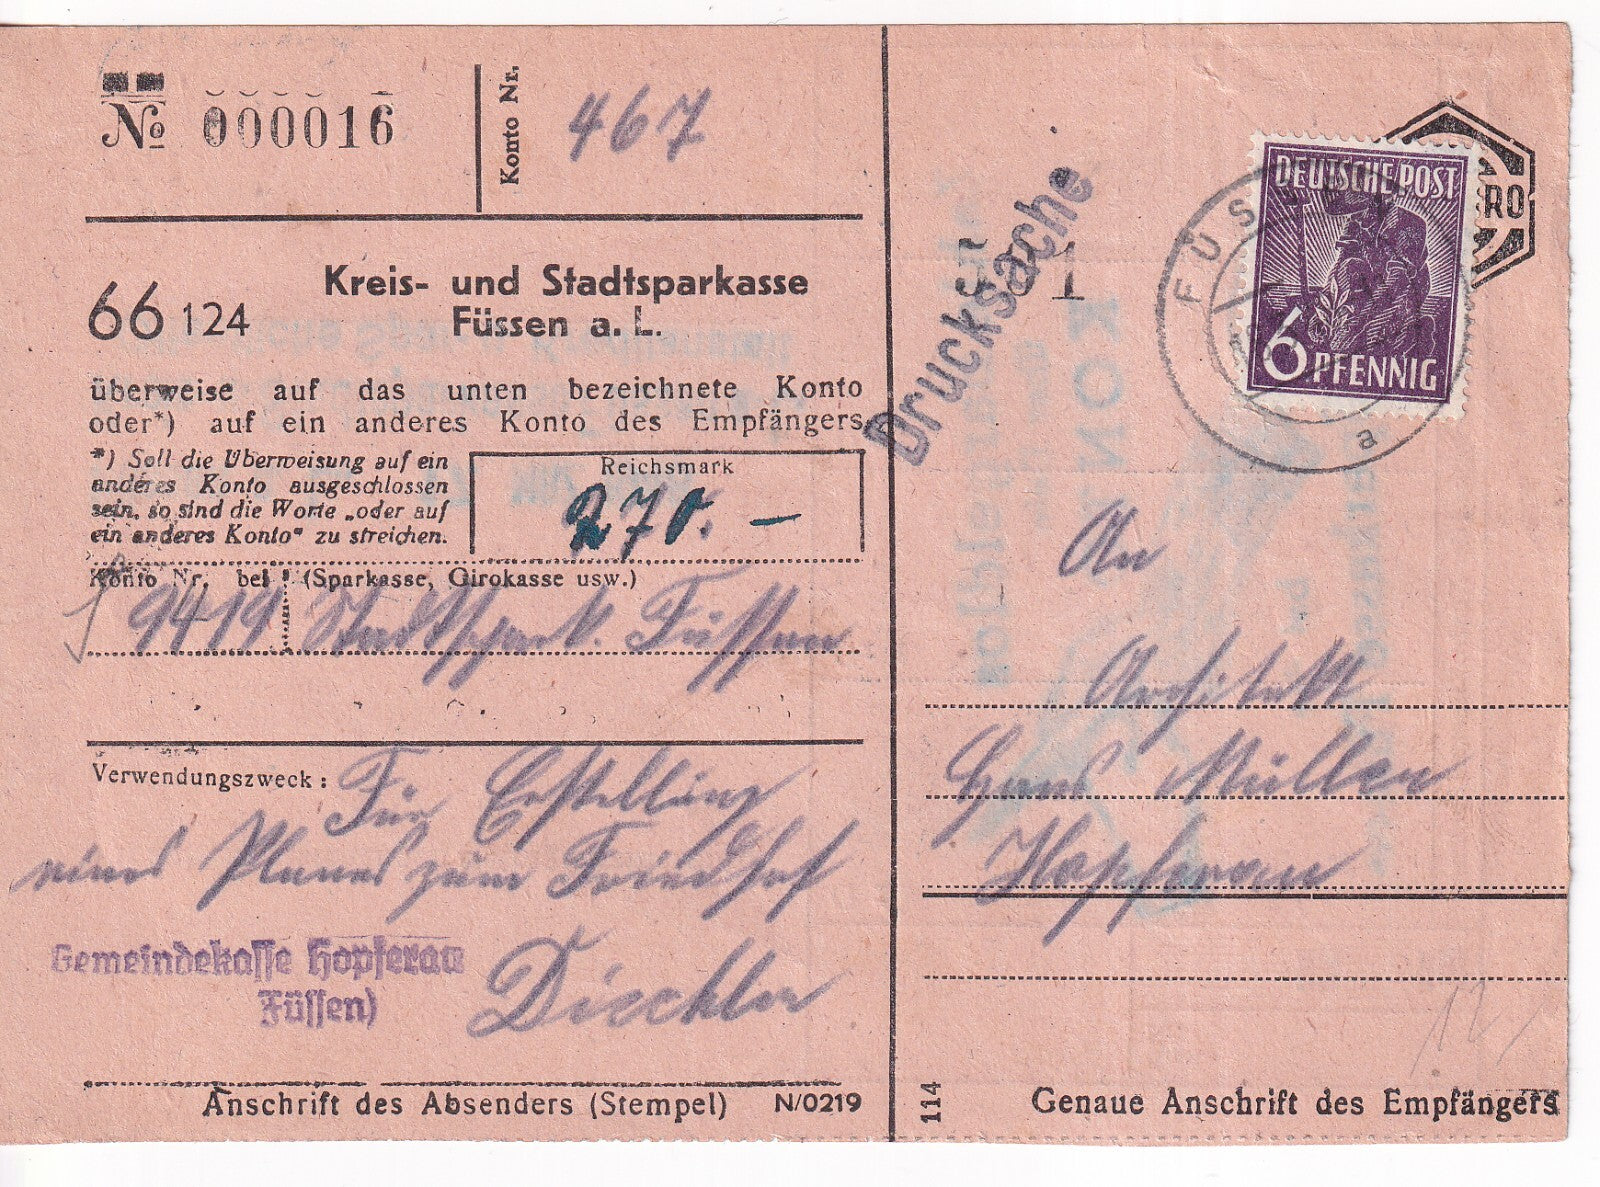 № 000016
Konto Nr.
467
66 124
Kreis- und Stadtsparkasse
Füssen a. L.
überweise auf das unten bezeichnete Konto
oder*) auf ein anderes Konto des Empfängers
*) Soll die Überweisung auf ein
anderes Konto ausgeschlossen
sein, so sind die Worte „oder auf
ein anderes Konto" zu streichen.
Reichsmark
270. –
Konto Nr. bei (Sparkasse, Girokasse usw.)
9419 Stadtspark. Füssen
Verwendungszweck:
Für Erstellung
eines Planes zum Friedhof
Gemeindekasse Hopferau
Füssen)
Anschrift des Absenders (Stempel) N/0219
Drucksache
DEUTSCHE POST
6 PFENNIG
RO
FÜS
a
An
Architekt
Hans Müller
Hopferau
12
114
Genaue Anschrift des Empfängers